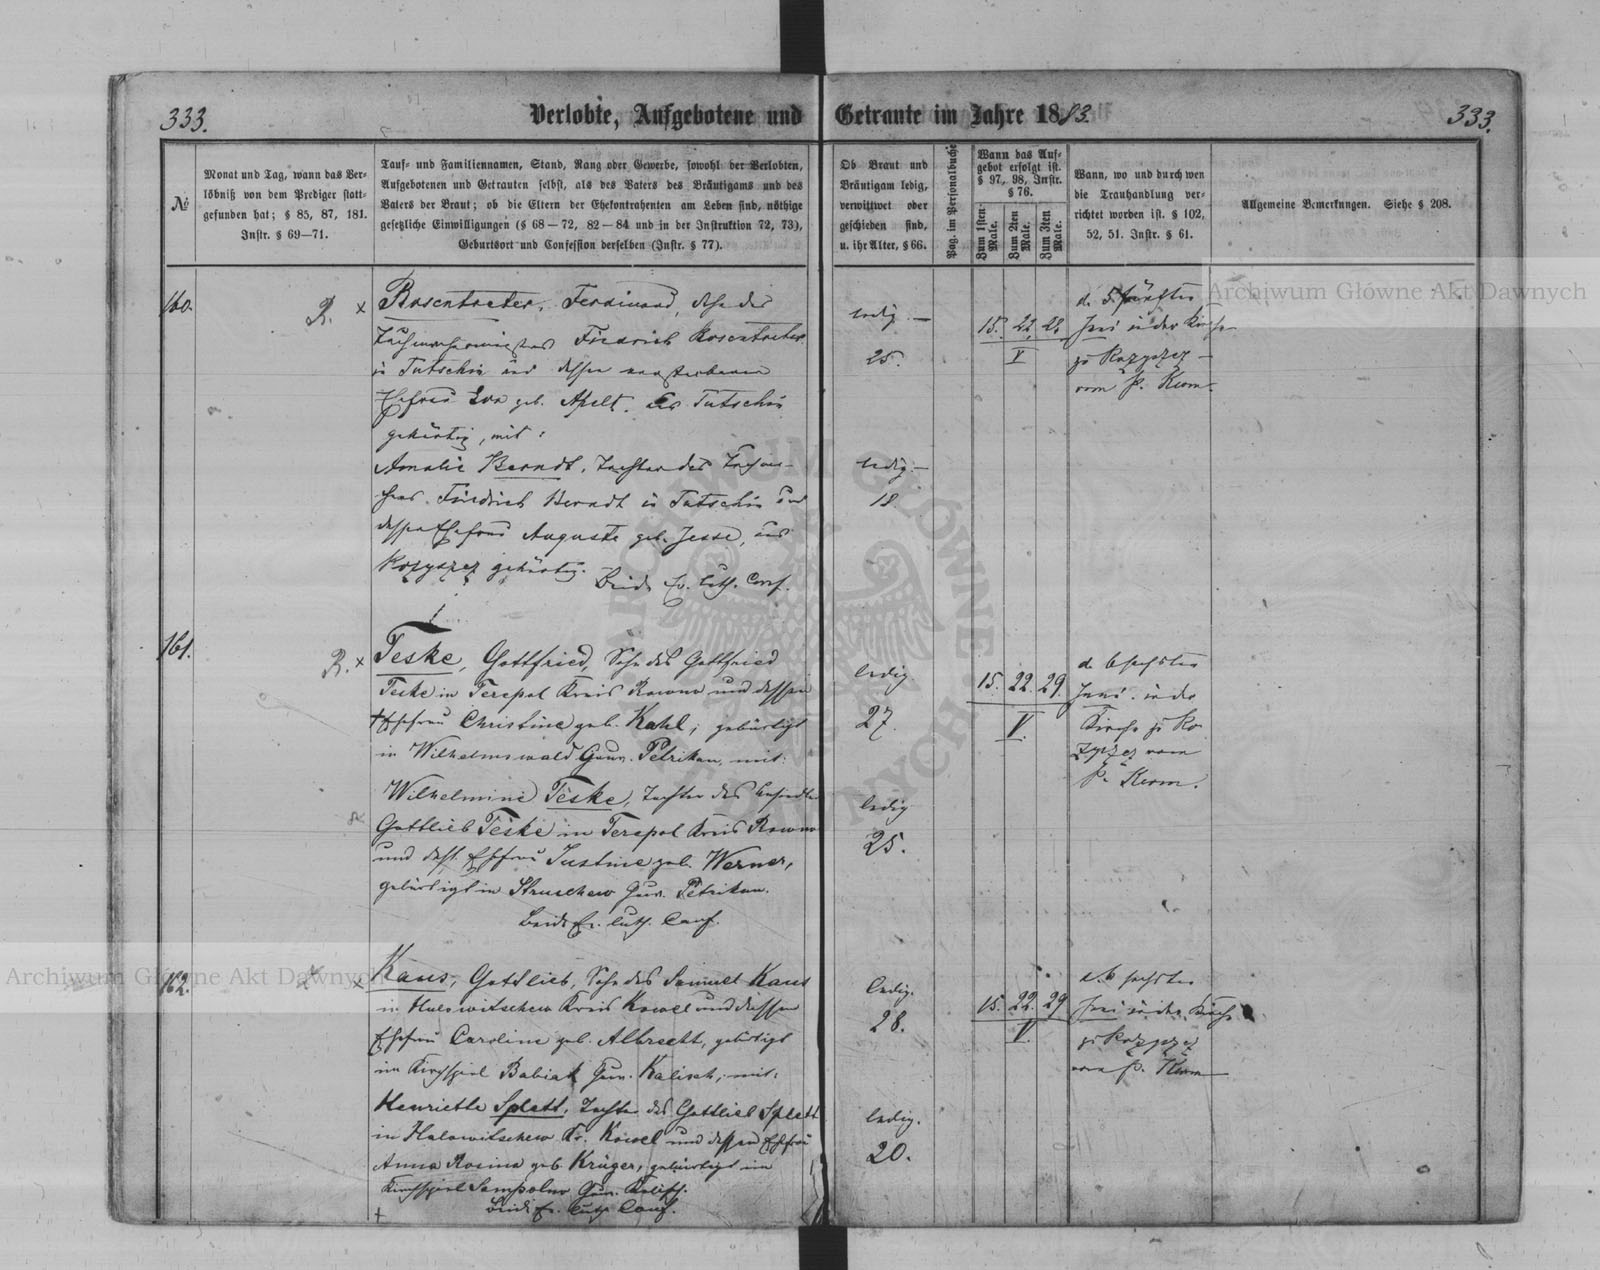 333.
Verlobte, Aufgebotene und Getraute im Jahre 1883.
333.
№
Monat und Tag, wann das Ver-
löbniß von dem Prediger statt-
gefunden hat; § 85, 87, 181.
Instr. § 69—71.
Tauf- und Familiennamen, Stand, Rang oder Gewerbe, sowohl der Verlobten,
Aufgebotenen und Getrauten selbst, als des Vaters des Bräutigams und des
Vaters der Braut; ob die Eltern der Ehekontrahenten am Leben sind, nöthige
gesetzliche Einwilligungen (§ 68—72, 82—84 und in der Instruktion 72, 73),
Geburtsort und Confession derselben (Instr. § 77).
Ob Braut und
Bräutigam ledig,
verwittwet oder
geschieden sind,
u. ihr Alter, § 66.
Pag. im Personalbuche
Wann das Auf-
gebot erfolgt ist.
§ 97, 98, Instr.
§ 76.
Zum 1sten
Male.
Zum 2ten
Male.
Zum 3ten
Male.
Wann, wo und durch wen
die Trauhandlung ver-
richtet worden ist. § 102,
52, 51. Instr. § 61.
Allgemeine Bemerkungen. Siehe § 208.
160.
R. x
Rosentreter, Ferdinand, Sohn des
Friedrich Rosentreter
in Tutschin und dessen verstorbenen
Ehefrau Eva geb. Apelt, aus Tutschin
gebürtig, mit:
Amalie Berndt, Tochter des Tuchma-
chers Friedrich Berndt in Tutschin und
dessen Ehefrau Auguste geb. Jesse, aus
Rozyszcz gebürtig.
Beide Ev. Luth. Conf.
ledig.—
25.
ledig.—
18
15. 22.
V
d. 5. fünften
Juni in der Kirche
zu Rozyszcz —
vom P. Kerm.
161.
R. x
Teske, Gottfried, Sohn des Gottfried
Teske in Terepol Kreis Rowno und dessen
† Ehefrau Christine geb. Kahl, gebürtigt
in Wilhelmswald Gouv. Petrikau, mit:
Wilhelmine Teske, Tochter des
Gottlieb Teske in Terepol Kreis Rowno
und dess. Ehefrau Justine geb. Werner,
gebürtigt in Struschew Guv. Petrikau.
Beide Ev. Luth. Conf.
ledig
27.
ledig
25.
15. 22. 29.
V.
d. 6 sechsten
Juni in der
Kirche zu Ro-
zyszcz vom
P. Kerm.
162.
x
Kaus, Gottlieb, Sohn des Samuel Kaus
in Kreis Kowel und dessen
Ehefrau Caroline geb. Albrecht, gebürtigt
im Kirchspiel Babiak Guv. Kalisch, mit:
Henriette Splett, Tochter des Gottlieb Splett
in Halowitschew Kr. Kowel und dessen Ehefrau
Anna Rosina geb. Krüger, gebürtigt im
Kirchspiel Sempolno Guv. Kalisch.
Beide Ev. Luth. Conf.
ledig.
28.
ledig.
20.
15. 22. 29
V.
d. 6 sechsten
Juni in der Kirche
zu Rozyszcz
vom P. Kerm
Archiwum Główne Akt Dawnych
Archiwum Główne Akt Dawnych